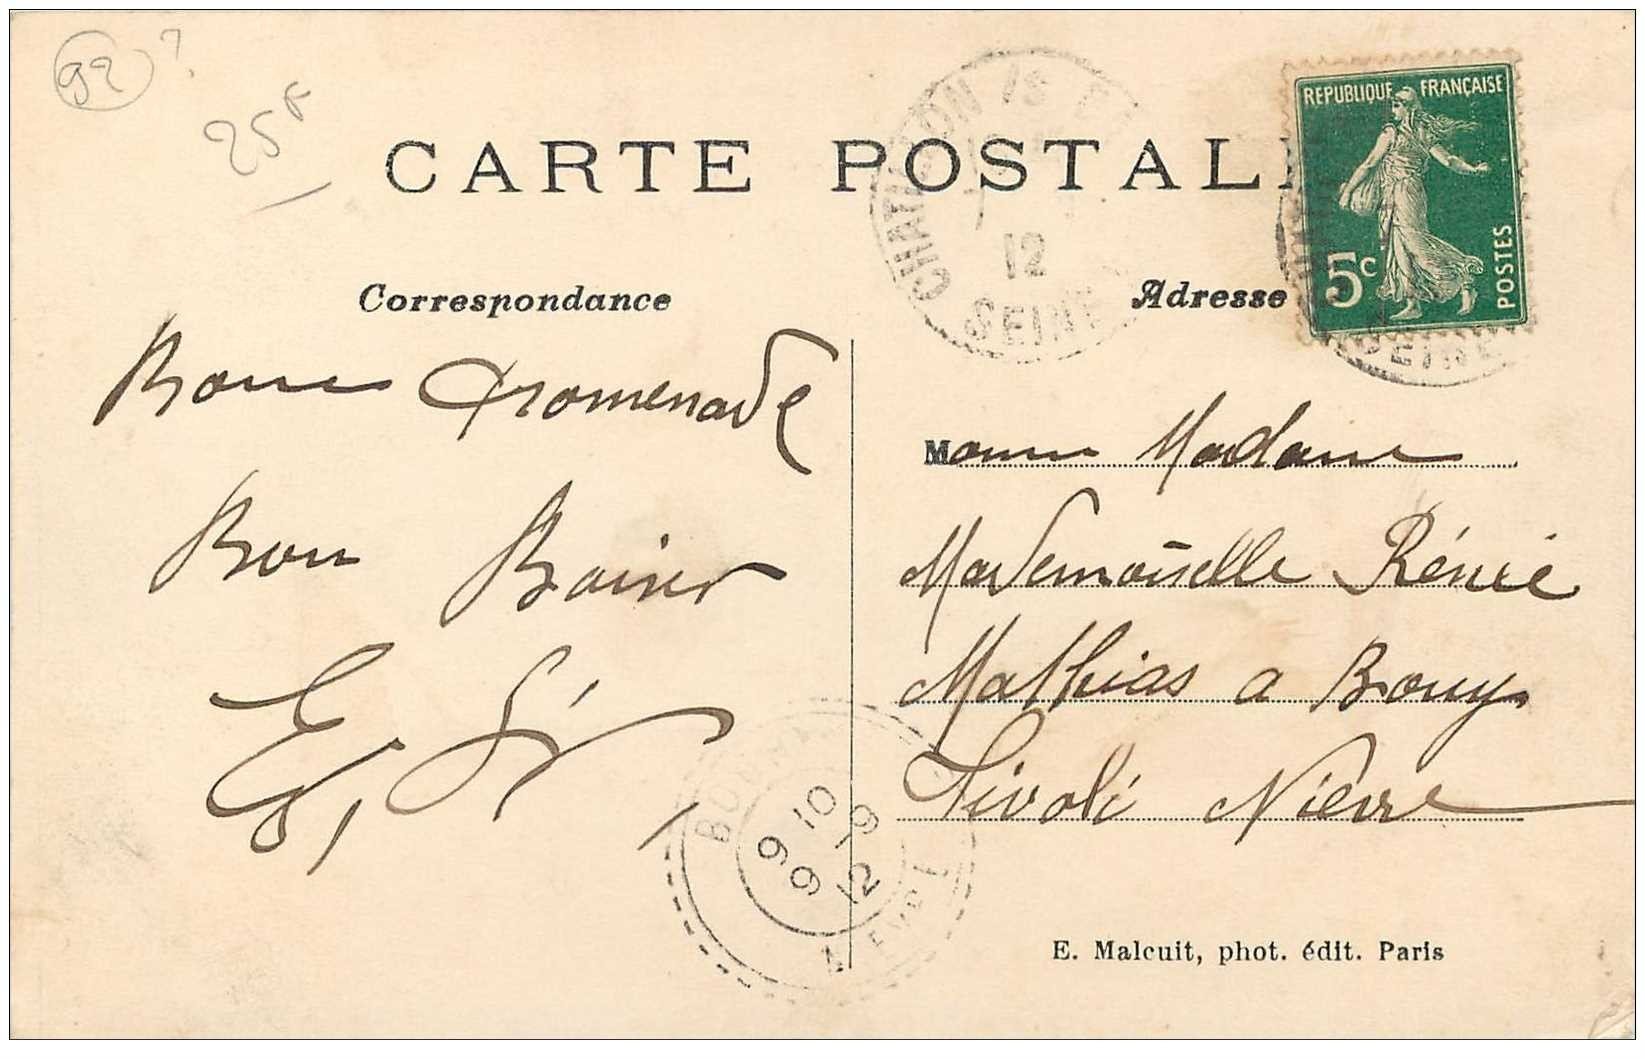 92 ?
25F
CARTE POSTAL
REPUBLIQUE FRANÇAISE
5c
POSTES
12
SEINE
SEINE
Correspondance
Adresse
Bonne Promenade
Bon Baiser
M Madame
Mademoiselle Rénée
Mathias a Bouy
Tivoli Nièvre
10
9 9
12
E. Malcuit, phot. édit. Paris